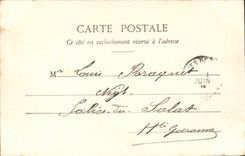 CARTE POSTALE
Ce côté est exclusivement réservé à l'adresse
Mr Louis Braquet
Salies-du-Salat
Hte Garonne
JUIN